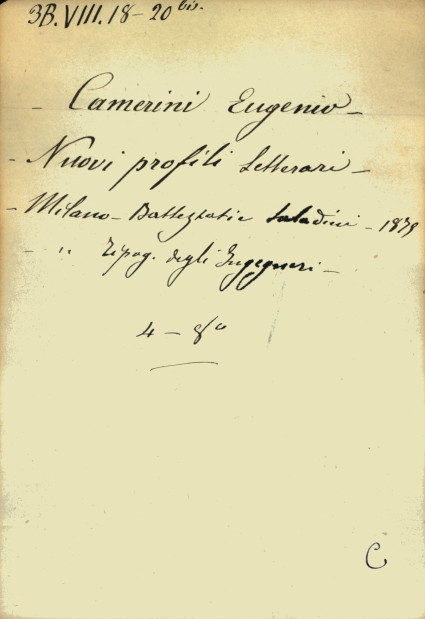 3B.VIII.18-20 bis.
- Camerini Eugenio -
- Nuovi profili letterari -
- Milano - Battezzati e Saladini - 1875
- " Tipog. degli Ingegneri -
4 - 8º
C